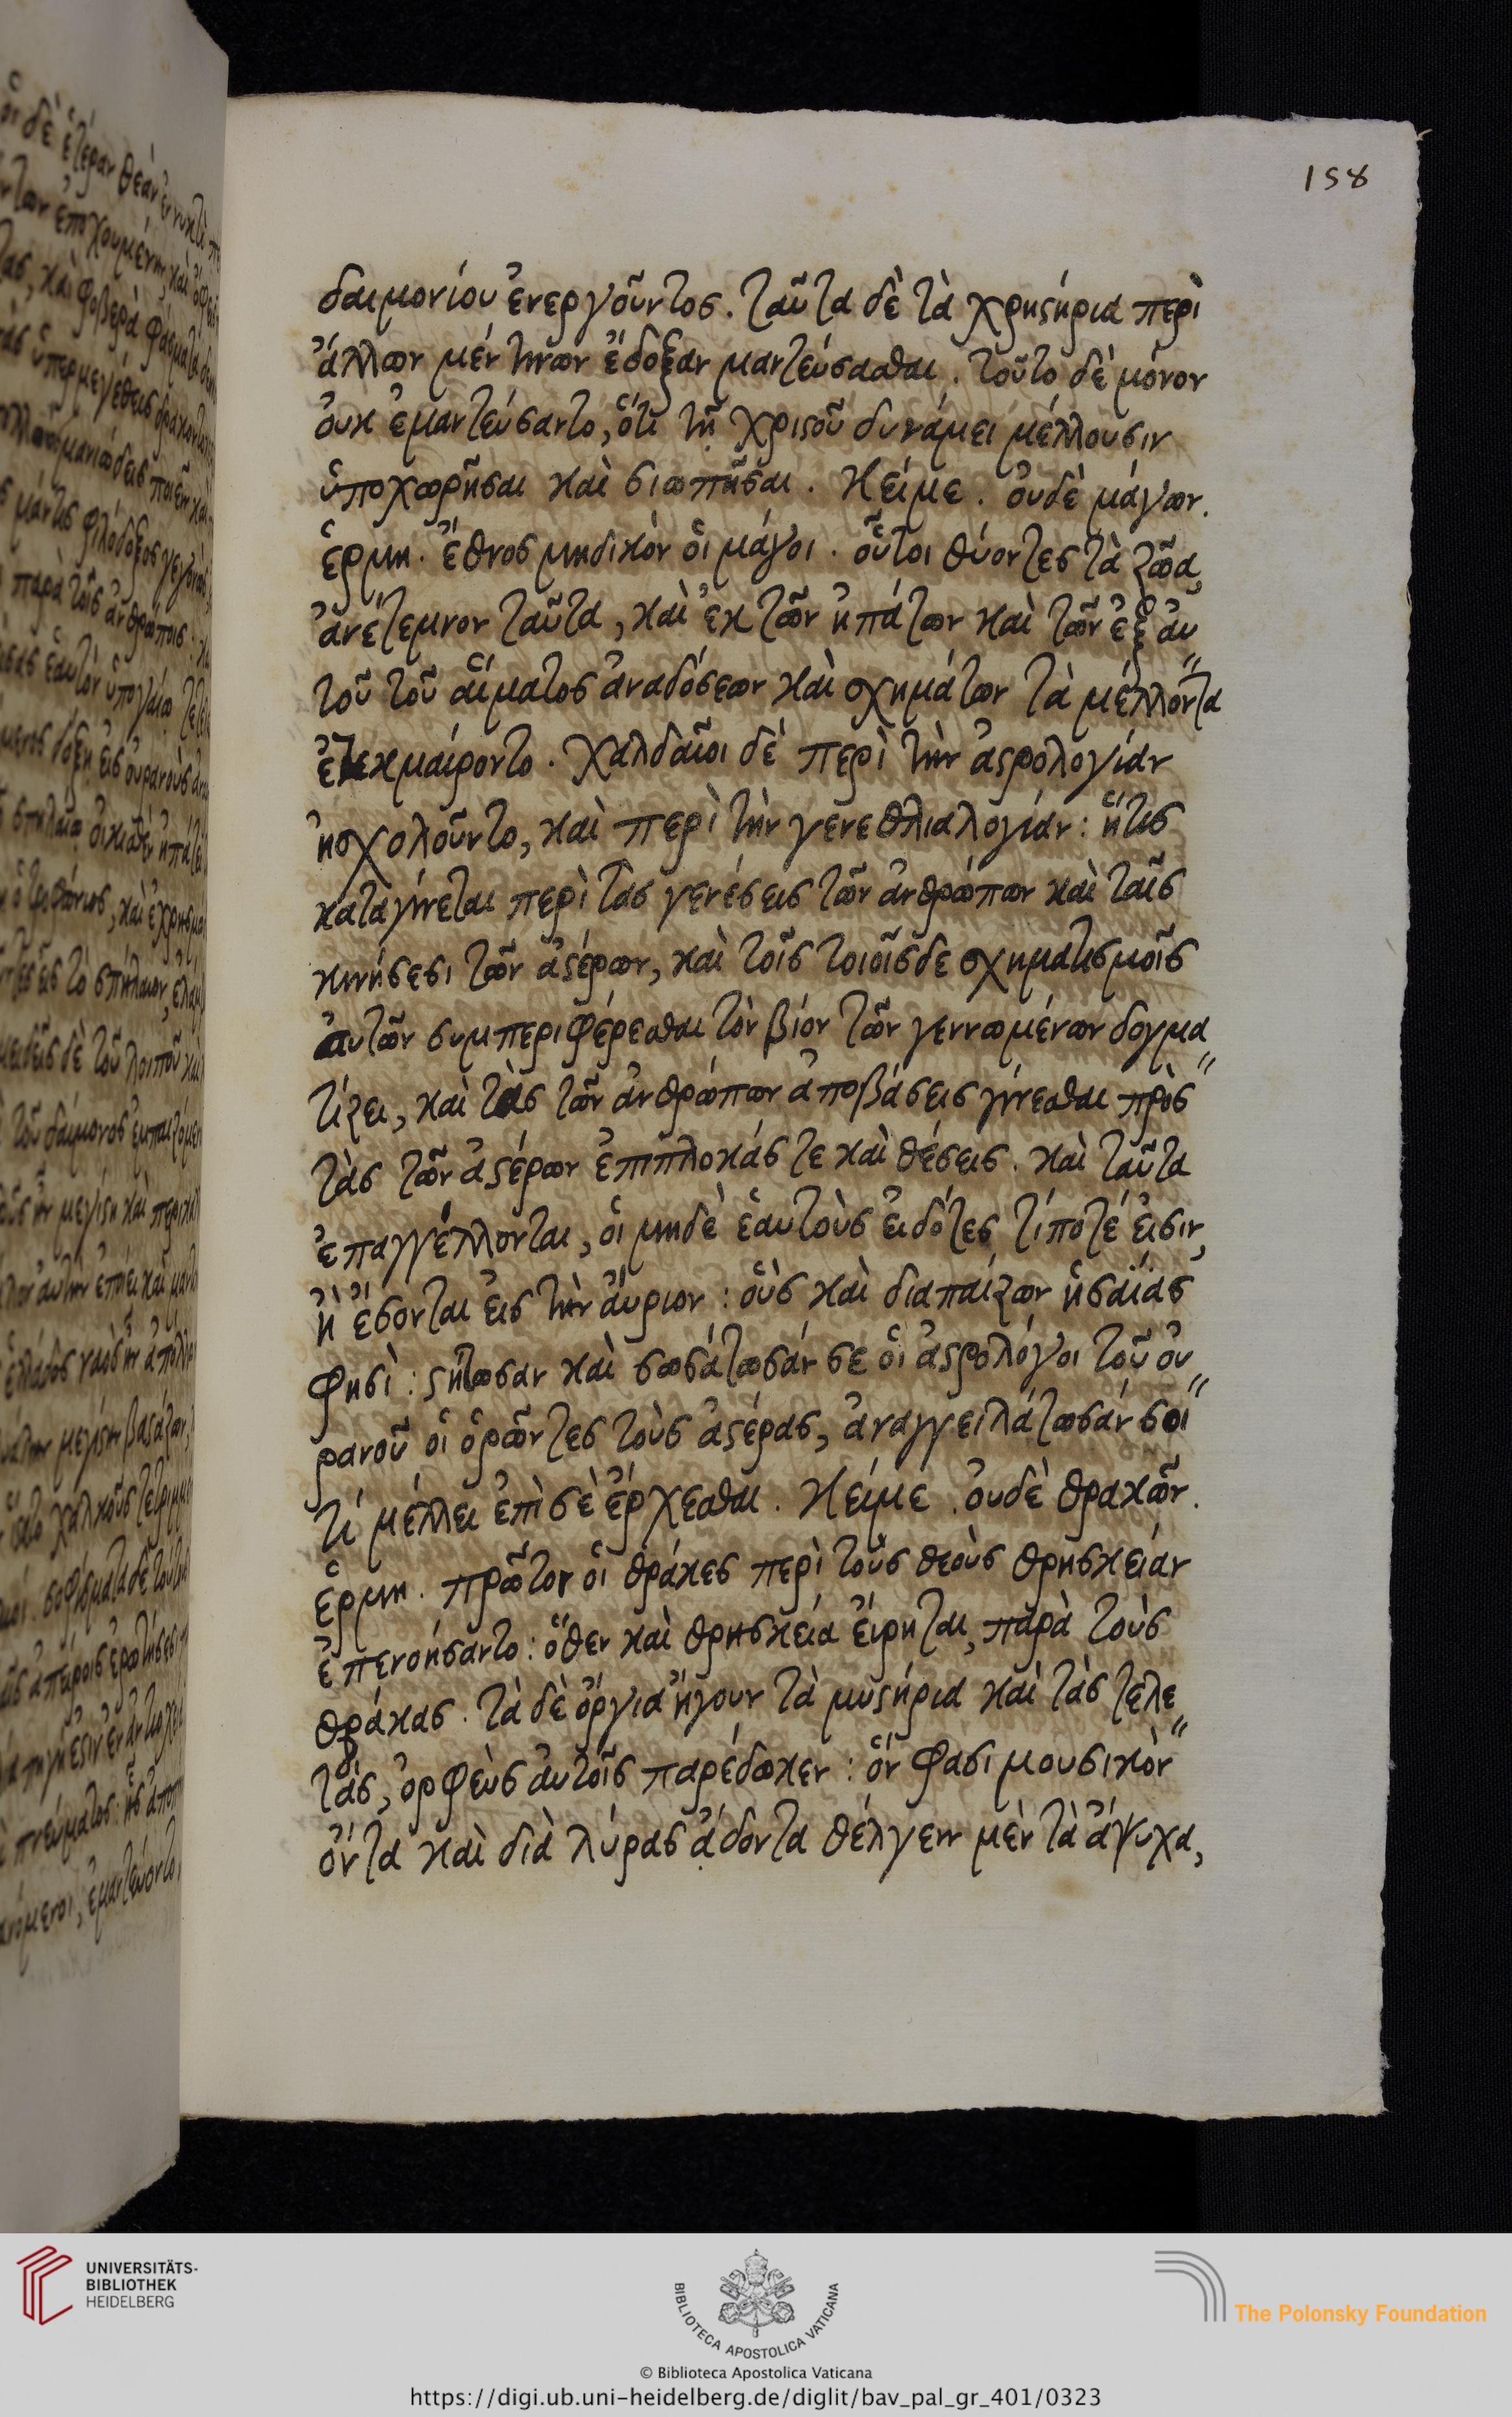 158
δαιμονίου ἐνεργοῦντος. ταῦτα δὲ τὰ χρηϛήρια περὶ
ἄλλων μέν τινων ἔδοξαν μαντεύσασθαι. τοῦτο δὲ μόνον
οὐκ ἐμαντεύσαντο, ὅτι τῇ χριϛοῦ δυνάμει μέλλουσιν
ὑποχωρῆσαι καὶ σιωπῆσαι. Κείμε. οὐδὲ μάγων.
ἑρμη. ἔθνος μηδικὸν οἱ μάγοι. οὗτοι θύοντες τὰ ζῶα,
ἀνέτεμνον ταῦτα, καὶ ἐκ τῶν ἡπάτων καὶ τῶν ἐξ αυ
τοῦ τοῦ αἵματος ἀναδόσεων καὶ σχημάτων τὰ μέλλοντα
ἐτεκμαίροντο. χαλδαῖοι δὲ περὶ τὴν ἀϛρολογίαν
ἠσχολοῦντο, καὶ περὶ τὴν γενεθλιαλογίαν: ἥτις
καταγίνεται περὶ τὰς γενέσεις τῶν ἀνθρώπων καὶ ταῖς
κινήσεσι τῶν ἀϛέρων, καὶ τοῖς τοιοῖσδε σχηματισμοῖς
αυτῶν συμπεριφέρεσθαι τὸν βίον τῶν γεννωμένων δογμα
τίζει, καὶ τὰς τῶν ἀνθρώπων ἀποβάσεις γίνεσθαι πρὸς
τὰς τῶν ἀϛέρων ἐπιπλοκάς τε καὶ θέσεις. καὶ ταῦτα
ἐπαγγέλλονται, οἱ μηδὲ ἑαυτοὺς εἰδότες τί ποτέ εἰσιν,
ἢ ἔσονται εἰς τὴν ἄυριον: οὓς καὶ διαπαίζων ἡσαΐας
φησὶ: ϛήτωσαν καὶ σωσάτωσάν σε οἱ ἀϛρολόγοι τοῦ ου
ρανοῦ οἱ ὁρῶντες τοὺς ἀϛέρας, ἀναγγειλάτωσάν σοι
τί μέλλει ἐπὶ σὲ ἔρχεσθαι. Κείμε. οὐδὲ θρακῶν.
ἑρμη. πρῶτον οἱ θράκες περὶ τοὺς θεοὺς θρησκείαν
ἐπενοήσαντο: ὅθεν καὶ θρησκεία εἴρηται, παρὰ τοὺς
θράκας. τὰ δὲ ὄργια ἤγουν τὰ μυϛήρια καὶ τὰς τελε
τάς, ὀρφεὺς αὐτοῖς παρέδωκεν: ὅν φασι μουσικὸν
ὄντα καὶ διὰ λύρας ᾄδοντα θέλγειν μὲν τὰ ἄψυχα,
UNIVERSITÄTS-
BIBLIOTHEK
HEIDELBERG
BIBLIOTECA APOSTOLICA VATICANA
The Polonsky Foundation
© Biblioteca Apostolica Vaticana
https://digi.ub.uni-heidelberg.de/diglit/bav_pal_gr_401/0323